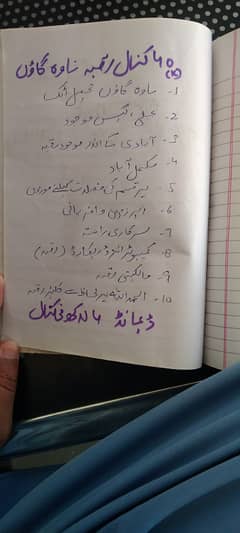 65 کنال رقبہ ناوہ گاؤں
1۔ ناوہ گاؤں تحصیل اٹک
2۔ بجلی، گیس موجود
3۔ آبادی کے اندر موجود رقبہ
4۔ مکمل آباد
5۔ ہر قسم کی فصلات کیلئے موزوں
6۔ زمین وافر پانی
7۔ سرکاری راستہ
8۔ کمپیوٹرائزڈ ریکارڈ (رقبہ)
9۔ مالکیتی رقبہ
10۔ الحمدللہ ہر لحاظ سے کلیئر رقبہ
ڈیمانڈ 6 لاکھ فی کنال